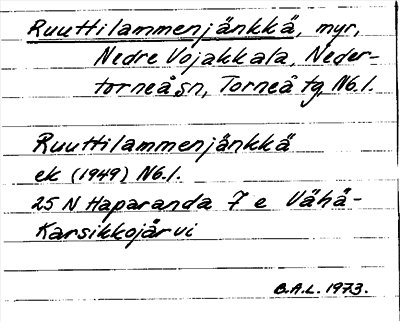 Ruuttilammenjänkkä, myr,
Nedre Vojakkala, Neder-
torneå sn, Torneå tg N6.l.
Ruuttilammenjänkkä
ek (1949) N6.l.
25 N Haparanda 7 e Vähä-
Karsikkojärvi
B.A.L. 1973.